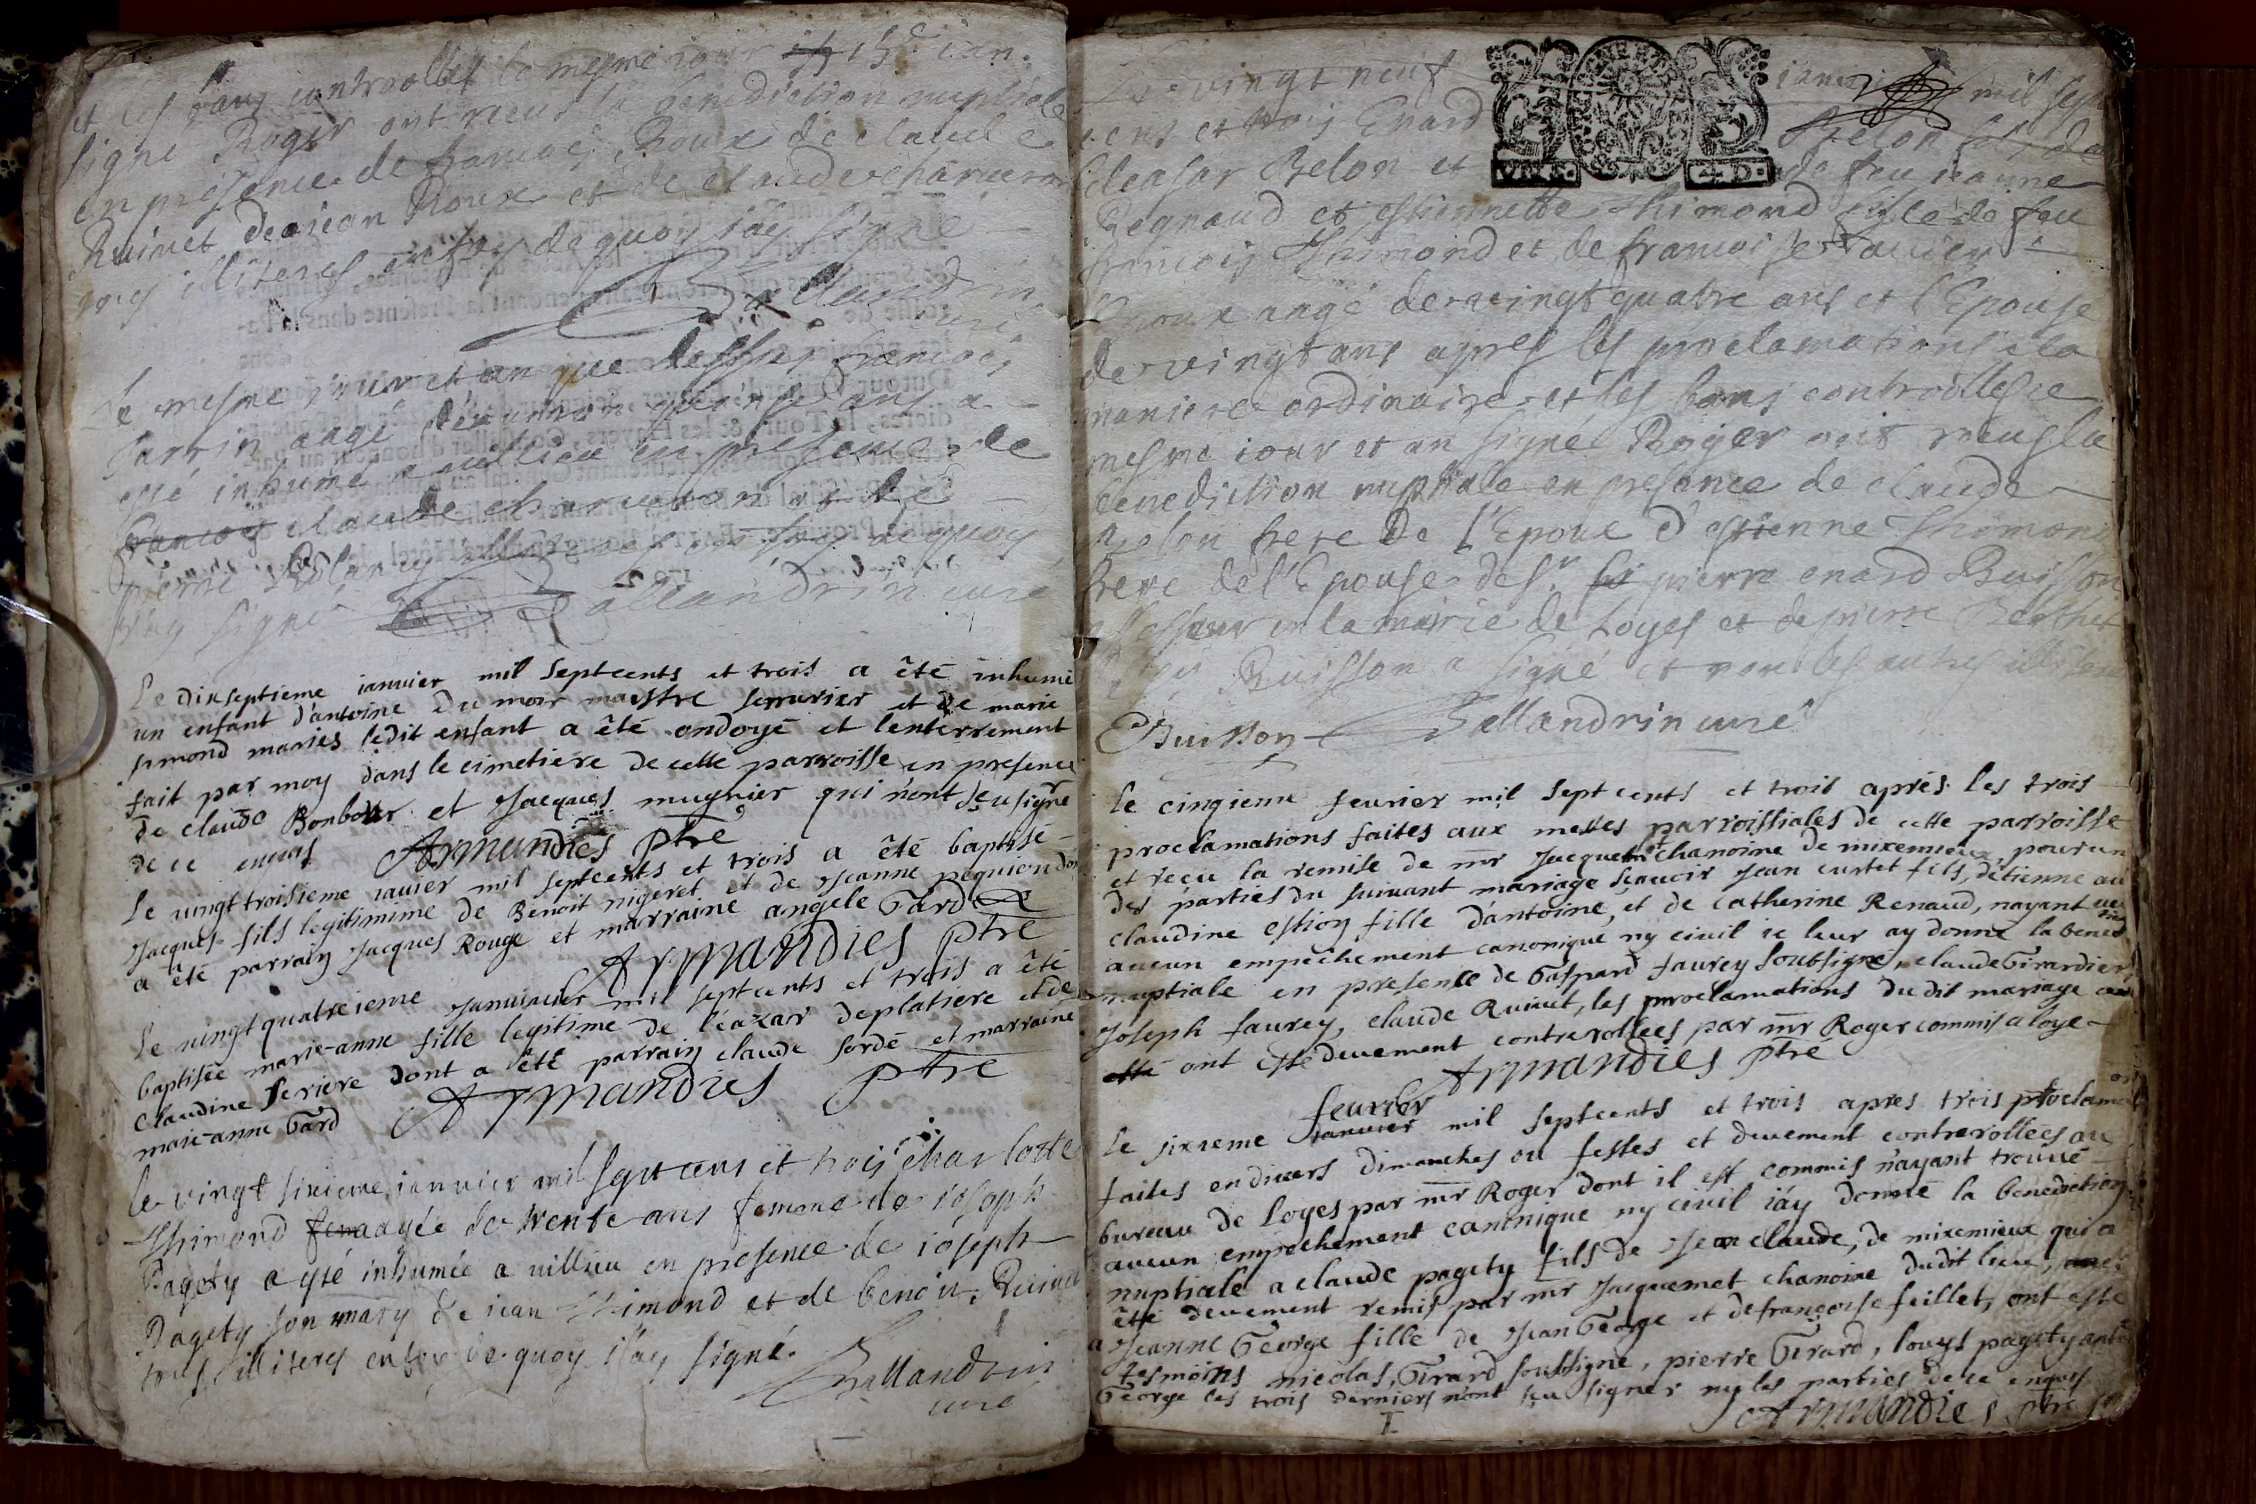 et les bans controollés le mesme iour 15e ian.
signé Roger ont receu la benediction nuptiale
en presence de francois Roux de claude
Ruivet de iean Roux et de claude charveron
touts illiteres en foy de quoy i'ay signé
Ballandrin
curé
Le mesme iour et an que dessus francois
sarrin aagé d'environ quinse ans a
esté inhumé a villieu en presence de
francois claude charveron et de
pierre illiteres en foy de quoy
i'ay signé Ballandrin curé
Le dixseptieme ianvier mil septcents et trois a été inhumé
un enfant d'antoine Dumoir maistre serrurier et de marie
simond mariés ledit enfant a été ondoyé et l'enterrement
fait par moy dans le cimetiere de cette parroisse en presence
de claude Bonbour et Jacques mugnier qui n'ont sçu signer
de ce enquis Armandies ptre
Le vingt troisieme ianvier mil septcents et trois a été baptisé
Jacques fils legitimime de Benoit nigeret et de Jeanne pequiendon
a été parrain Jacques Rouge et marraine angele Gard
Armandies ptre
Le vingt quatrieme Janvier mil septcents et trois a été
baptisée marie-anne fille legitime de l'éazar deplatiere et de
Claudine feriere dont a été parrain claude sordé et marraine
marie-anne Gard Armandies ptre
le vingt sixieme ianvier mil sept cens et trois charlotte
Thimond fem aagée de trente ans femme de ioseph
Pagety a esté inhumée a villieu en presence de ioseph
Pagety son mary de iean Thimond et de benoit Ruivet
touts illiteres en foy de quoy i'ay signé.
Ballandrin
curé
Le vingt neuf ianvier mil sept
cens et trois Enard Belon fils de
eleasar Belon et de feu ieanne
Regnaud et estiennette Thimond fille de feu
francois Thimond et de francoise
l'Epoux aagé de vingt quatre ans et l'Epouse
de vingt ans apres les proclamations a la
maniere ordinaire et les bans controllés le
mesme iour et an signé Roger ont receus la
benediction nuptiale en presance de claude
Belon frere de l'Epoux d'estienne Thimond
frere de l'Epouse de sr pierre enard Buisson
assesseur en la mairie de Loyes et de pierre Berthet
Buisson a signé et non les autres
Buisson Ballandrin curé
Le cinqieme fevrier mil sept cents et trois aprés les trois
proclamations faites aux messes parroissiales de cette parroisse
et reçu la remise de mr Jacquemet chanoine de miximieux pour un
des parties du suivant mariage sçavoir Jean curtet fils d'etienne av
claudine estion fille d'antoine, et de catherine Renaud, nayant
aucun empéchement canonique ny civil ie leur ay donné la bened
nuptiale en presence de Gaspard faurey soubsigné, claude Girardier
Joseph faurey, claude Ruivet, les proclamations dudit mariage
esté ont esté duement controrollées par mr Roger commis a loye
Armandies ptre
fevrier
Le sixieme ianvier mil septcents et trois apres trois proclamati
faites en divers dimanches ou festes et duement controrollées au
bureau de Loyes par mr Roger dont il est commis n'ayant trouvé
aucun empechement canonique ny civil i'ay donné la benediction
nuptiale a claude pagety fils de Jean claude, de miximieux qui a
été deuement remis par mr Jacquemet chanoine dudit lieu,
a Jeanne George fille de Jean George et de françoise feillet, ont esté
tesmoins nicolas Girard soubsigné, pierre Girard, louys pagety
George les trois derniers n'ont sçu signer ny les parties de ce enquis
Armandies ptre